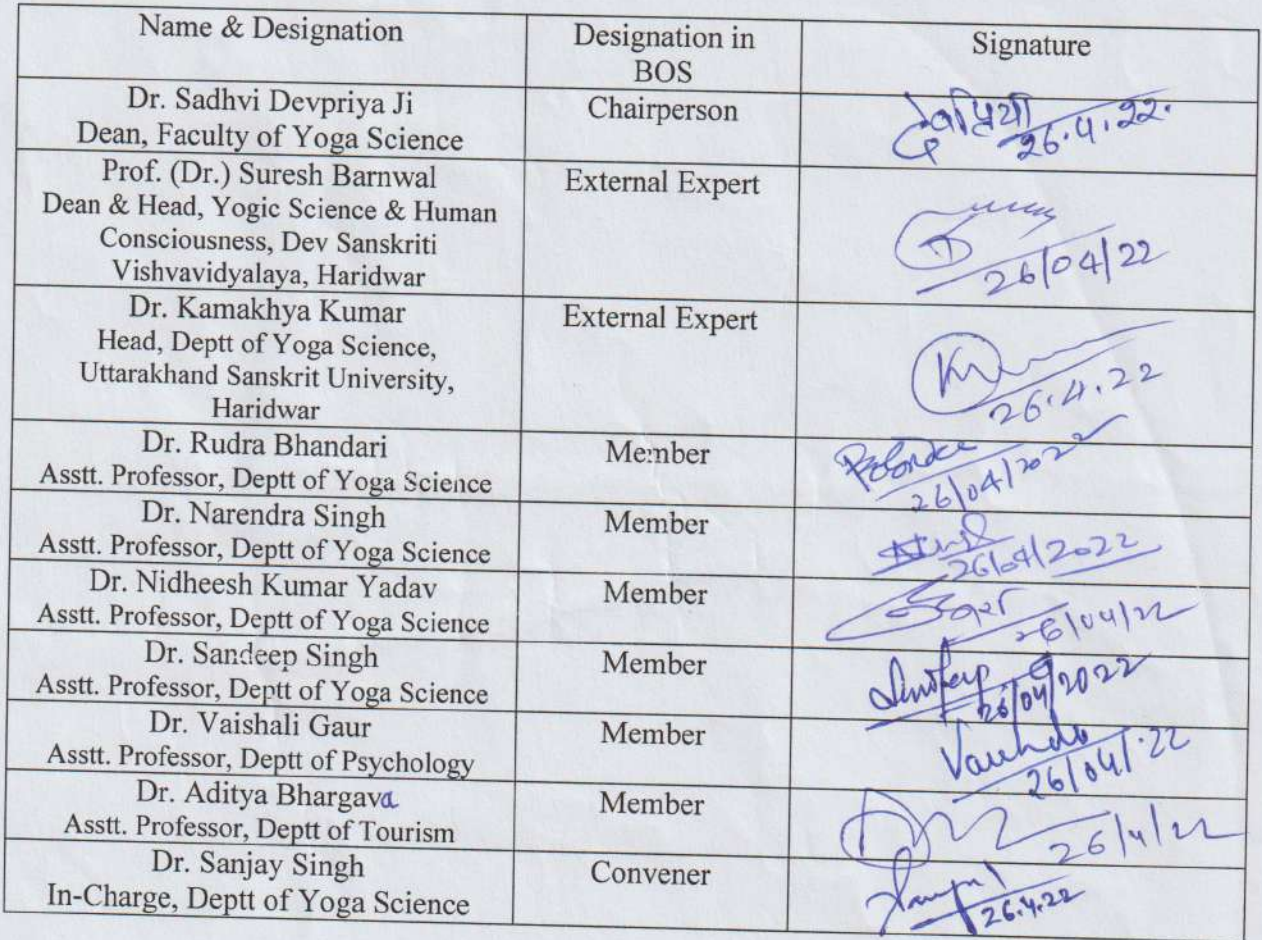 Name & Designation
Designation in
BOS
Signature
Dr. Sadhvi Devpriya Ji
Dean, Faculty of Yoga Science
Chairperson
देवप्रिया
26.4.22.
Prof. (Dr.) Suresh Barnwal
Dean & Head, Yogic Science & Human
Consciousness, Dev Sanskriti
Vishvavidyalaya, Haridwar
External Expert
26/04/22
Dr. Kamakhya Kumar
Head, Deptt of Yoga Science,
Uttarakhand Sanskrit University,
Haridwar
External Expert
26.4.22
Dr. Rudra Bhandari
Asstt. Professor, Deptt of Yoga Science
Member
26/04/2022
Dr. Narendra Singh
Asstt. Professor, Deptt of Yoga Science
Member
26/04/2022
Dr. Nidheesh Kumar Yadav
Asstt. Professor, Deptt of Yoga Science
Member
26/04/22
Dr. Sandeep Singh
Asstt. Professor, Deptt of Yoga Science
Member
26/04/2022
Dr. Vaishali Gaur
Asstt. Professor, Deptt of Psychology
Member
26/04/22
Dr. Aditya Bhargava
Asstt. Professor, Deptt of Tourism
Member
26/4/22
Dr. Sanjay Singh
In-Charge, Deptt of Yoga Science
Convener
26.4.22